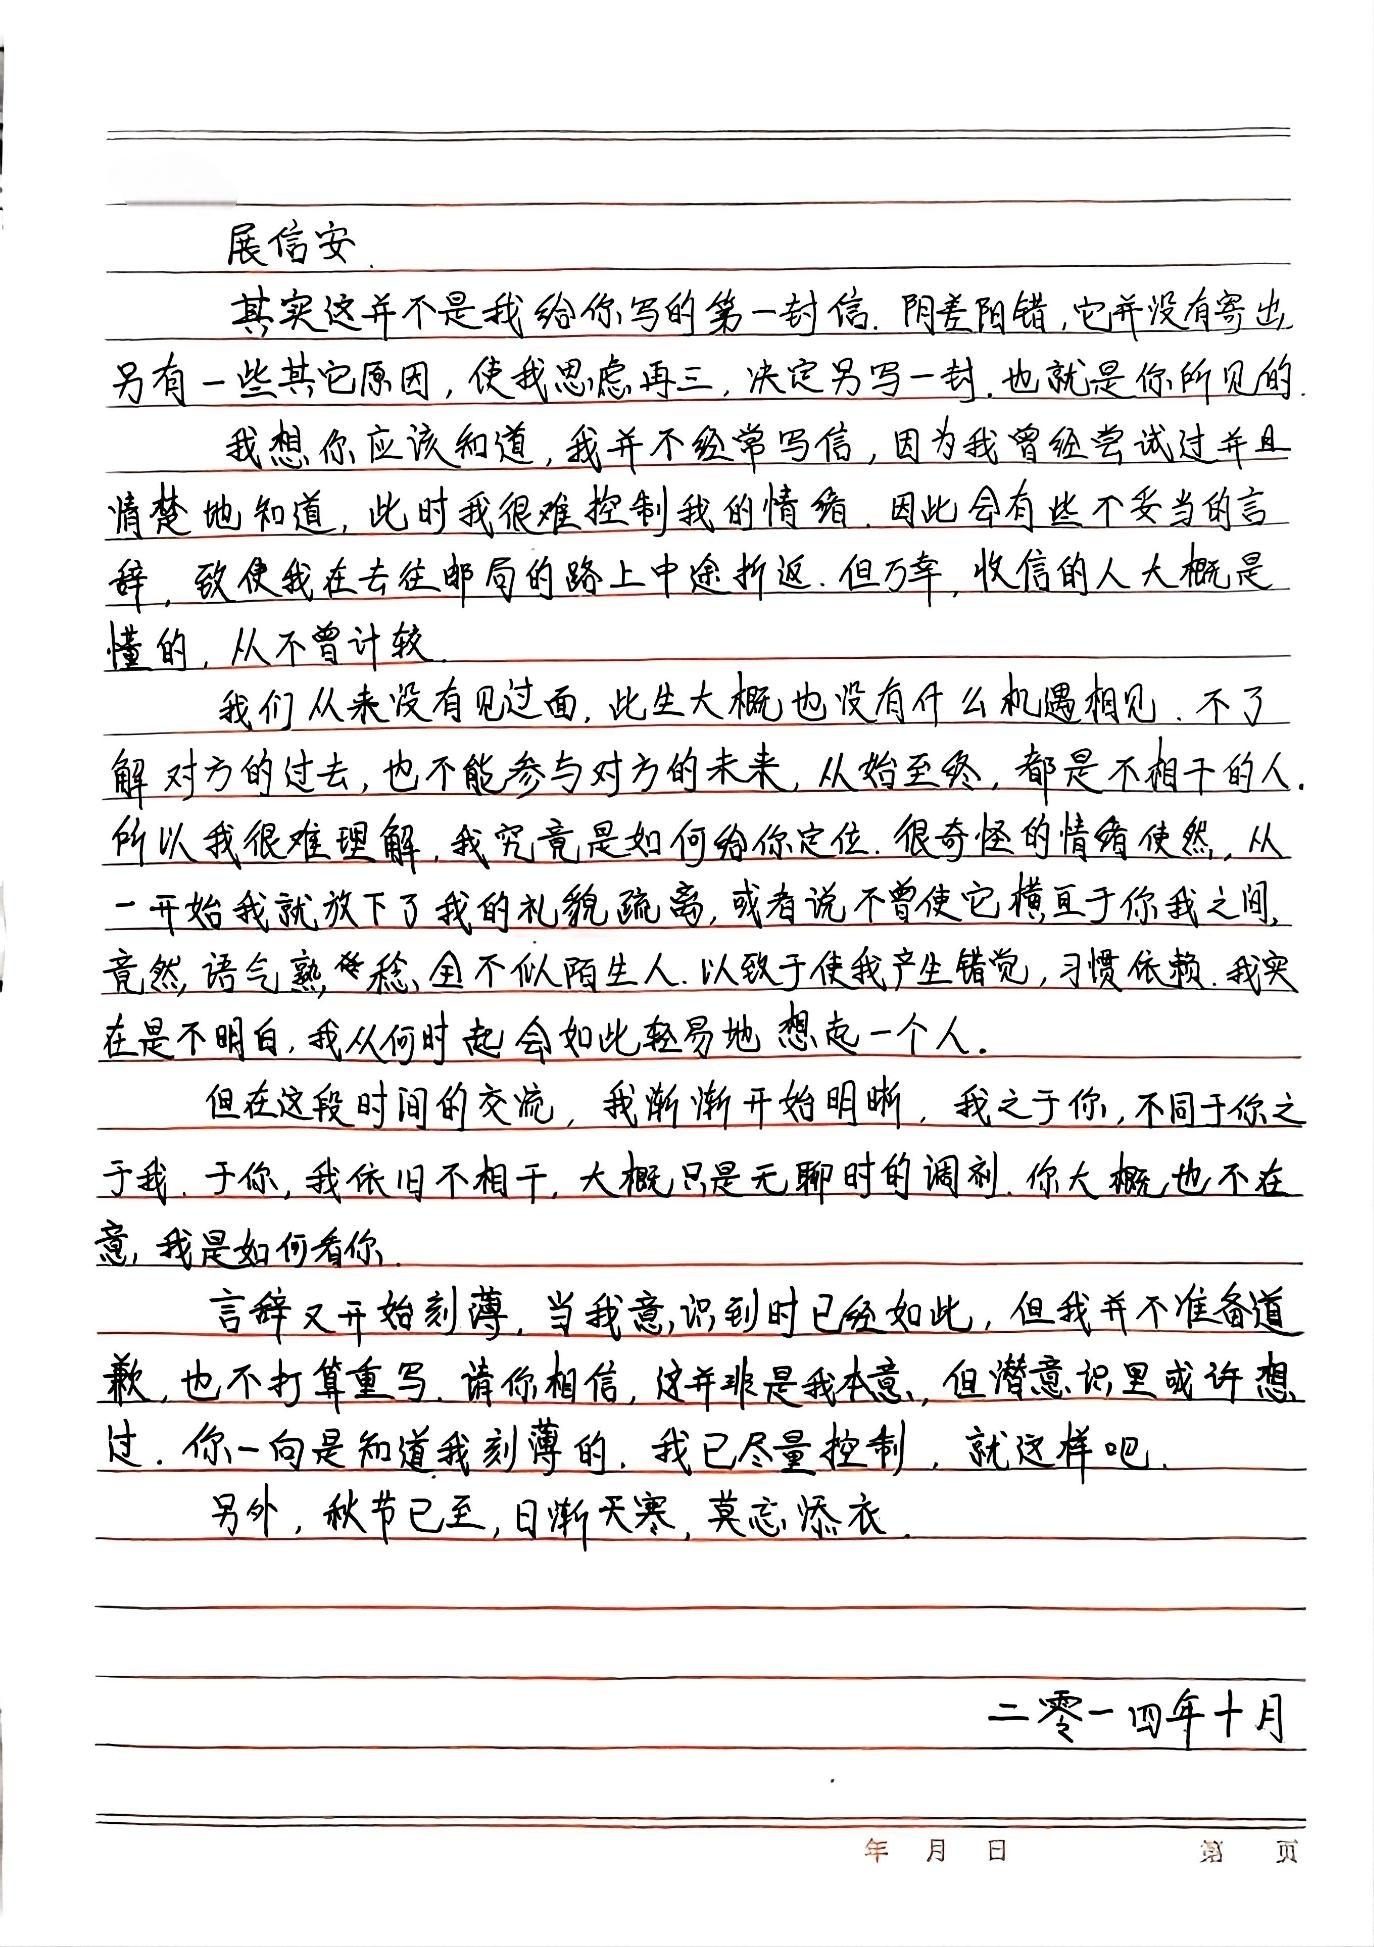 展信安.
其实这并不是我给你写的第一封信.阴差阳错,它并没有寄出
另有一些其它原因,使我思虑再三,决定另写一封.也就是你所见的.
我想你应该知道,我并不经常写信,因为我曾经尝试过并且
清楚地知道,此时我很难控制我的情绪.因此会有些不妥当的言
辞,致使我在去往邮局的路上中途折返.但万幸,收信的人大概是
懂的,从不曾计较.
我们从来没有见过面,此生大概也没有什么机遇相见.不了
解对方的过去,也不能参与对方的未来,从始至终,都是不相干的人.
所以我很难理解,我究竟是如何给你定位.很奇怪的情绪使然,从
一开始我就放下了我的礼貌疏离,或者说不曾使它横亘于你我之间,
竟然,语气熟稔,全不似陌生人.以致于使我产生错觉,习惯依赖.我实
在是不明白,我从何时起会如此轻易地想起一个人.
但在这段时间的交流,我渐渐开始明晰,我之于你,不同于你之
于我.于你,我依旧不相干,大概只是无聊时的调剂.你大概也不在
意,我是如何看你.
言辞又开始刻薄,当我意识到时已经如此,但我并不准备道
歉,也不打算重写.请你相信,这并非是我本意,但潜意识里或许想
过.你一向是知道我刻薄的.我已尽量控制,就这样吧.
另外,秋节已至,日渐天寒,莫忘添衣.
二零一四年十月
年 月 日 第 页